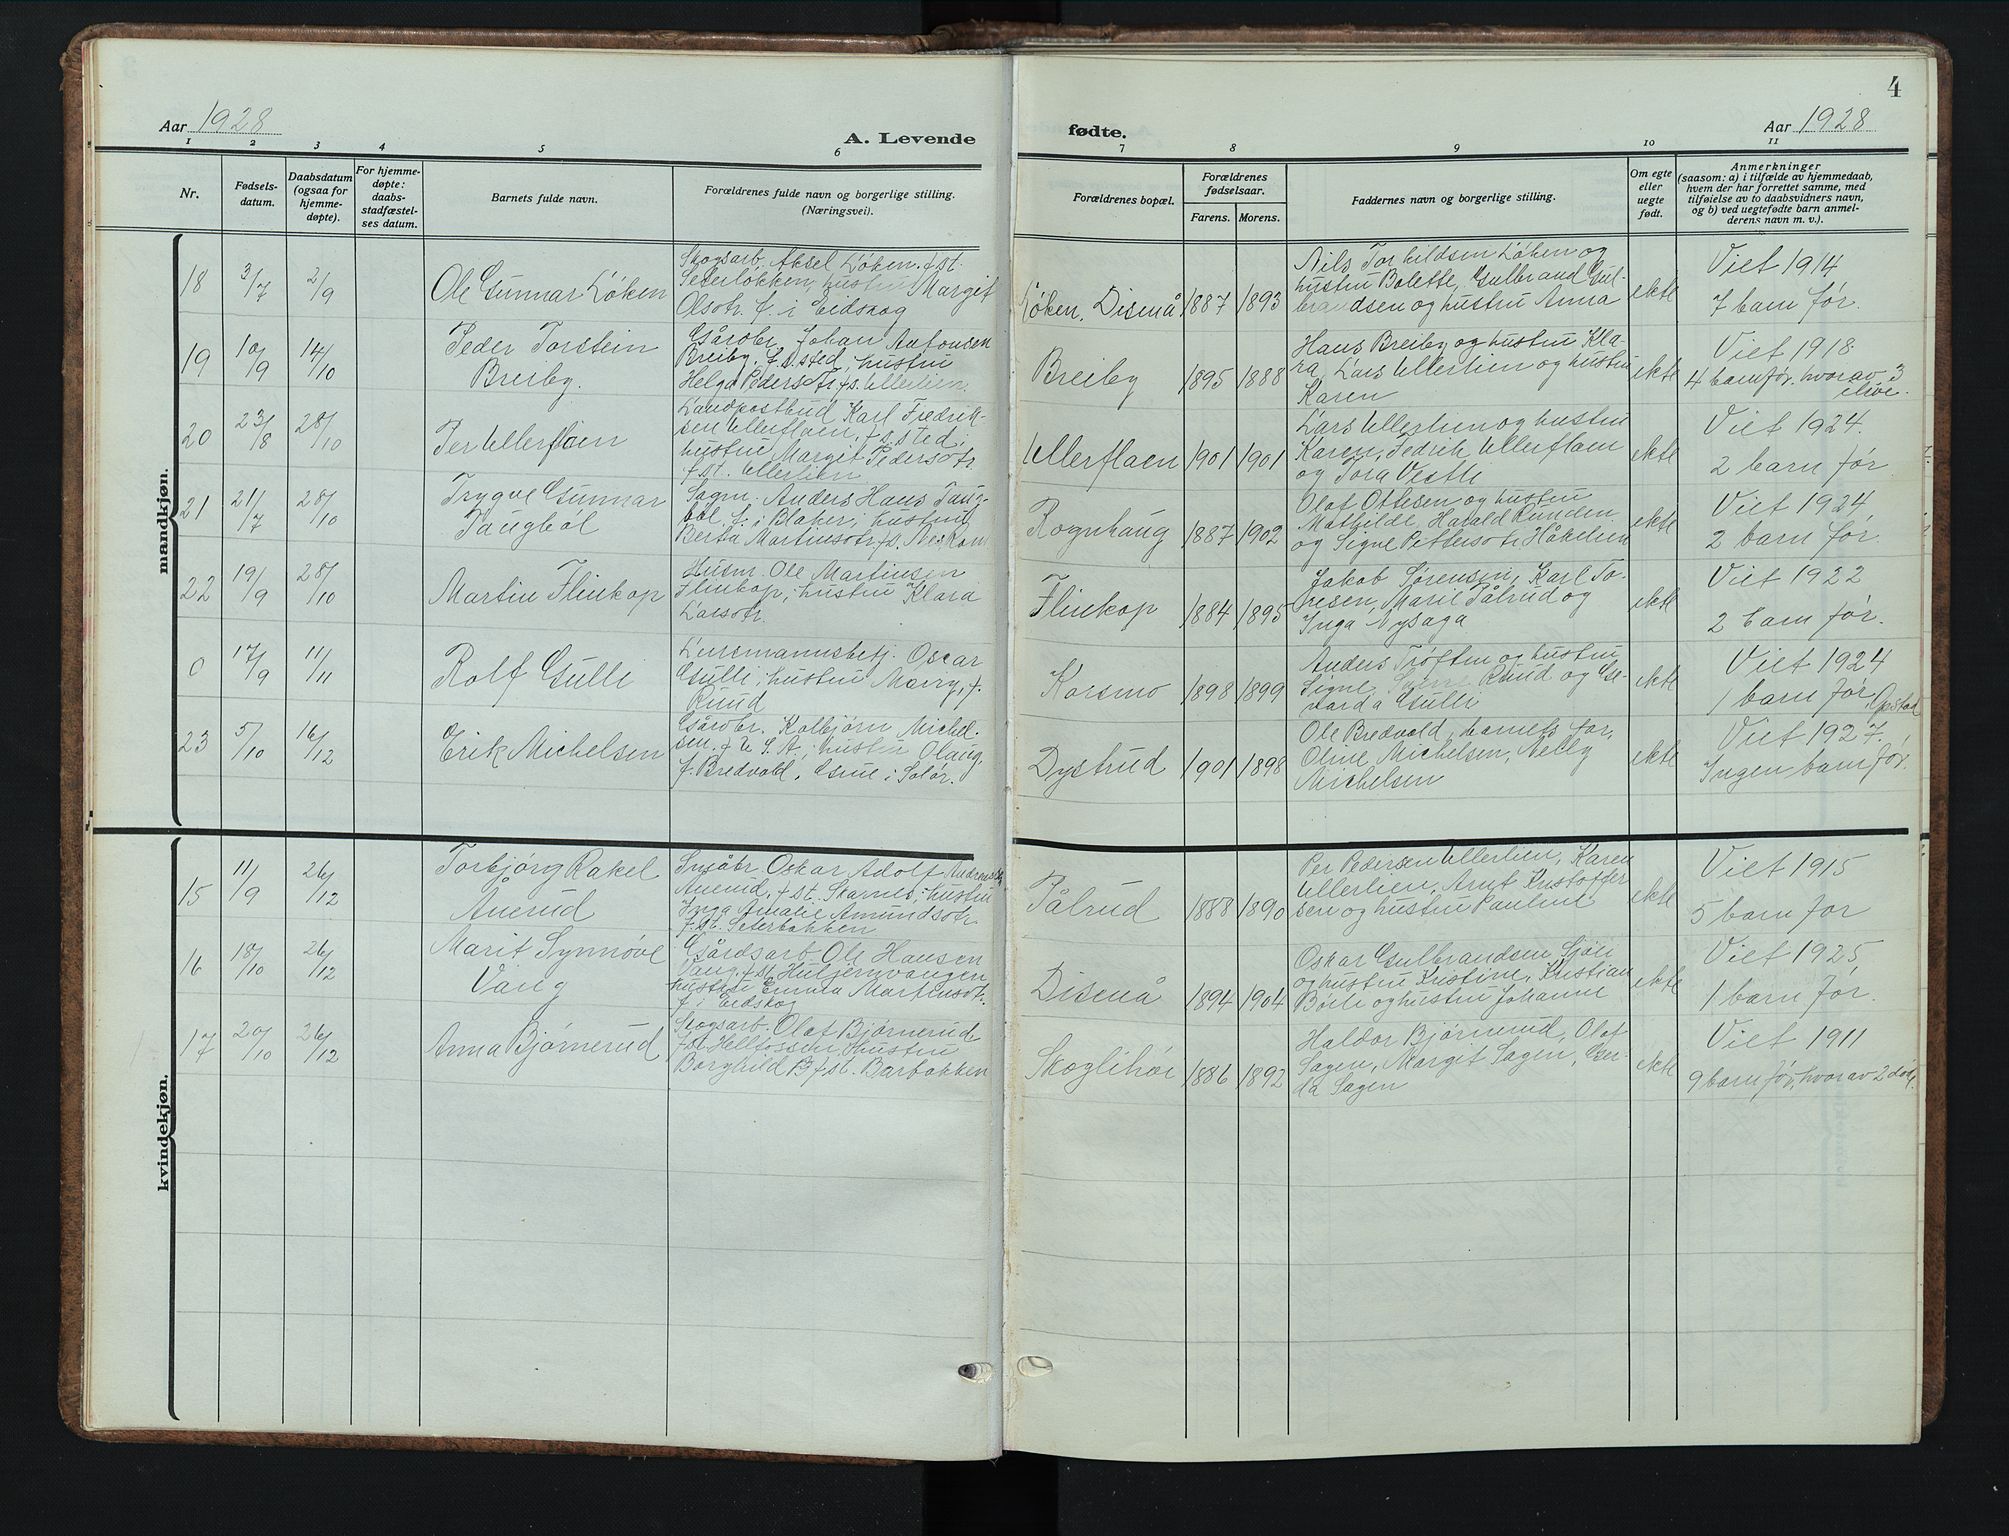 4
Aar 1928
A. Levende
fødte.
Aar 1928
1 2 3 4 5 6 7 8 9 10 11
Nr.
Fødsels-
datum.
Daabsdatum
(ogsaa for
hjemme-
døpte).
For hjemme-
døpte:
daabs-
stadfæstel-
ses datum.
Barnets fulde navn.
Forældrenes fulde navn og borgerlige stilling.
(Næringsvei).
Forældrenes bopæl.
Forældrenes
fødselsaar.
Farens. Morens.
Faddernes navn og borgerlige stilling.
Om egte
eller
uegte
født.
Anmerkninger
(saasom: a) i tilfælde av hjemmedaab,
hvem der har forrettet samme, med
tilføielse av to daabsvidners navn,
og b) ved uegtefødte barn anmel-
derens navn m. v.).
mandkjøn.
18 3/7 2/9
Ole Gunnar Løken
Skogsarb. Aksel Løken f. st.
Seterløkken, hustru Margit
Olsdtr. f. i Eidskog
Løken, Disenå 1887 1893
Nils Torkildsen Løken og
hustru Bolette, Gulbrand Gul-
brandsen og hustru Anna
ekte
Viet 1914
7 barn før.
19 10/9 14/10
Peder Torstein
Breiby.
Gårdbr. Johan Antonsen
Breiby, f. s. sted, hustru
Helga Pedersdtr. f. s. Ullerlien
Breiby 1895 1888
Hans Breiby og hustru Kla-
ra, Lars Ullerlien og hustru
Karen
ekte
Viet 1918.
4 barn før, hvorav 3
ilive.
20 23/8 28/10
Per Ullerflaen
Landpostbud Karl Fredrik-
sen Ullerflaen, f. s. sted;
hustru Margit Pedersdtr.
f. st. Ullerlien
Ullerflaen 1901 1901
Lars Ullerlien og hustru
Karen, Fedrik Ullerflaen
og Tora Vestli
ekte
Viet 1924.
2 barn før
21 21/7 28/10
Trygve Gunnar
Taugbøl
Sagm. Anders Hans Taug-
bøl f. i Blaker; hustru
Berta Martinsdtr. f. s. Nes, Rom
Rognhaug 1887 1902
Olaf Ottesen og hustru
Mathilde, Harald Runden
og Signe Pettersdtr. Håkelien
ekte
Viet 1924
2 barn før.
22 19/9 28/10
Martin Flinkop
Husm. Ole Martinsen
Flinkop, hustru Klara
Larsdtr.
Flinkop 1884 1895
Jakob Sørensen, Karl To-
resen, Marie Pålrud og
Inga Nysaga
ekte
Viet 1922
2 barn før.
0 17/9 11/11
Rolf Gulli
Lensmannsbetj. Oscar
Gulli; hustru Marry, f.
Ruud
Korsmo 1898 1899
Anders Trøften og hustru
Signe, Ruud og Ge-
rarda Gulli
ekte
Viet 1924
1 barn før, Opstad
23 5/10 16/12
Erik Michelsen
Gårdbr. Kolbjørn Michel-
sen. f. U. S. A; hustru Olaug,
f. Bredvold, Grue i Solør.
Dystrud 1901 1898
Ole Bredvold, barnets far,
Oline Michelsen, Nelly
Michelsen
ekte
Viet 1927.
Ingen barn før.
kvindekjøn.
15 11/9 26/12
Torbjørg Rakel
Åuerud
Småbr. Oskar Adolf Andreassen
Auerud, f. st. Skarnes; hustru
Inga Amalie Amundsdtr.
f. st. Seterbakken
Pålrud 1888 1890
Per Pedersen Ullerlien, Karen
Ullerlien, Arnt Kristoffer-
sen og hustru Pauline
ekte
Viet 1915
5 barn før
16 18/10 26/12
Marit Synnøve
Vang
Gårdsarb. Ole Hansen
Vang. f. st. Huljernvangen
hustru Emma Martinsdtr.
f. i Eidskog
Disenå 1894 1904
Oskar Gulbrandsen Sjøli
og hustru Kristine, Kristian
Børli og hustru Johanne
ekte
Viet 1925
1 barn før.
17 20/10 26/12
Anna Bjørnerud
Skogsarb. Olaf Bjørnerud
f. st. Helfossen, Hustru
Borghild B. f. st. Barbakken
Skoglihøi 1886 1892
Haldor Bjørnerud, Olaf
Sagen, Margit Sagen, Ger-
da Sagen
ekte
Viet 1911
9 barn før, hvorav 2 død.